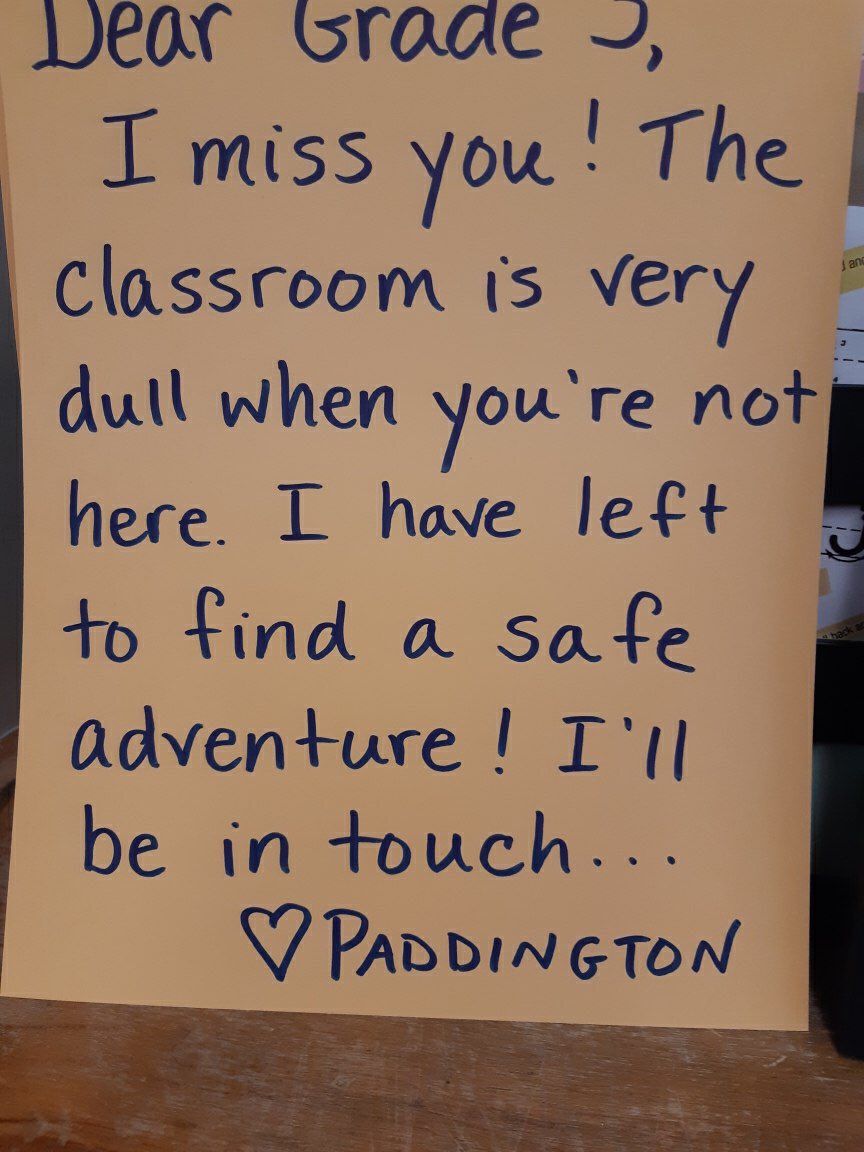 Dear Grade
I miss you! The
classroom is very
dull when you're not
here. I have left
to find a safe
adventure! I'll
be in touch...
♡ PADDINGTON